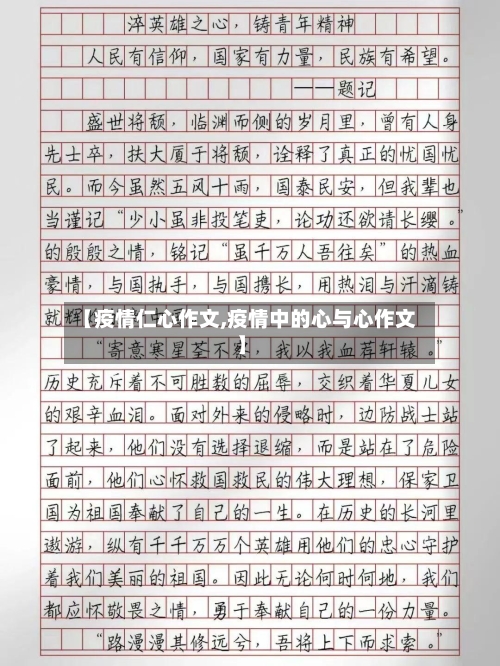 淬英雄之心，铸青年精神
人民有信仰，国家有力量，民族有希望。
——题记
盛世将颓，临渊而侧的岁月里，曾有人身
先士卒，扶大厦于将颓，诠释了真正的忧国忧
民。而今虽然五风十雨，国泰民安，但我辈也
当谨记“少小虽非投笔吏，论功还欲请长缨。”
的殷殷之情，铭记“虽千万人吾往矣”的热血
豪情，与国执手，与国携长，用热泪与汗滴铸
就辉
【疫情仁心作文,疫情中的心与心作文
】
“寄意寒星荃不察，我以我血荐轩辕。”
历史充斥着不可胜数的屈辱，交织着华夏儿女
的艰辛血泪。面对外来的侵略时，边防战士站
了起来，他们没有选择退缩，而是站在了危险
面前，他们心怀救国救民的伟大理想，保家卫
国为祖国奉献了自己的一生。在历史的长河里
遨游，纵有千千万万个英雄用他们的忠心守护
着我们美丽的祖国。因此无论何时何地，我们
都应怀敬畏之情，勇于奉献自己的一份力量。
“路漫漫其修远兮，吾将上下而求索。”